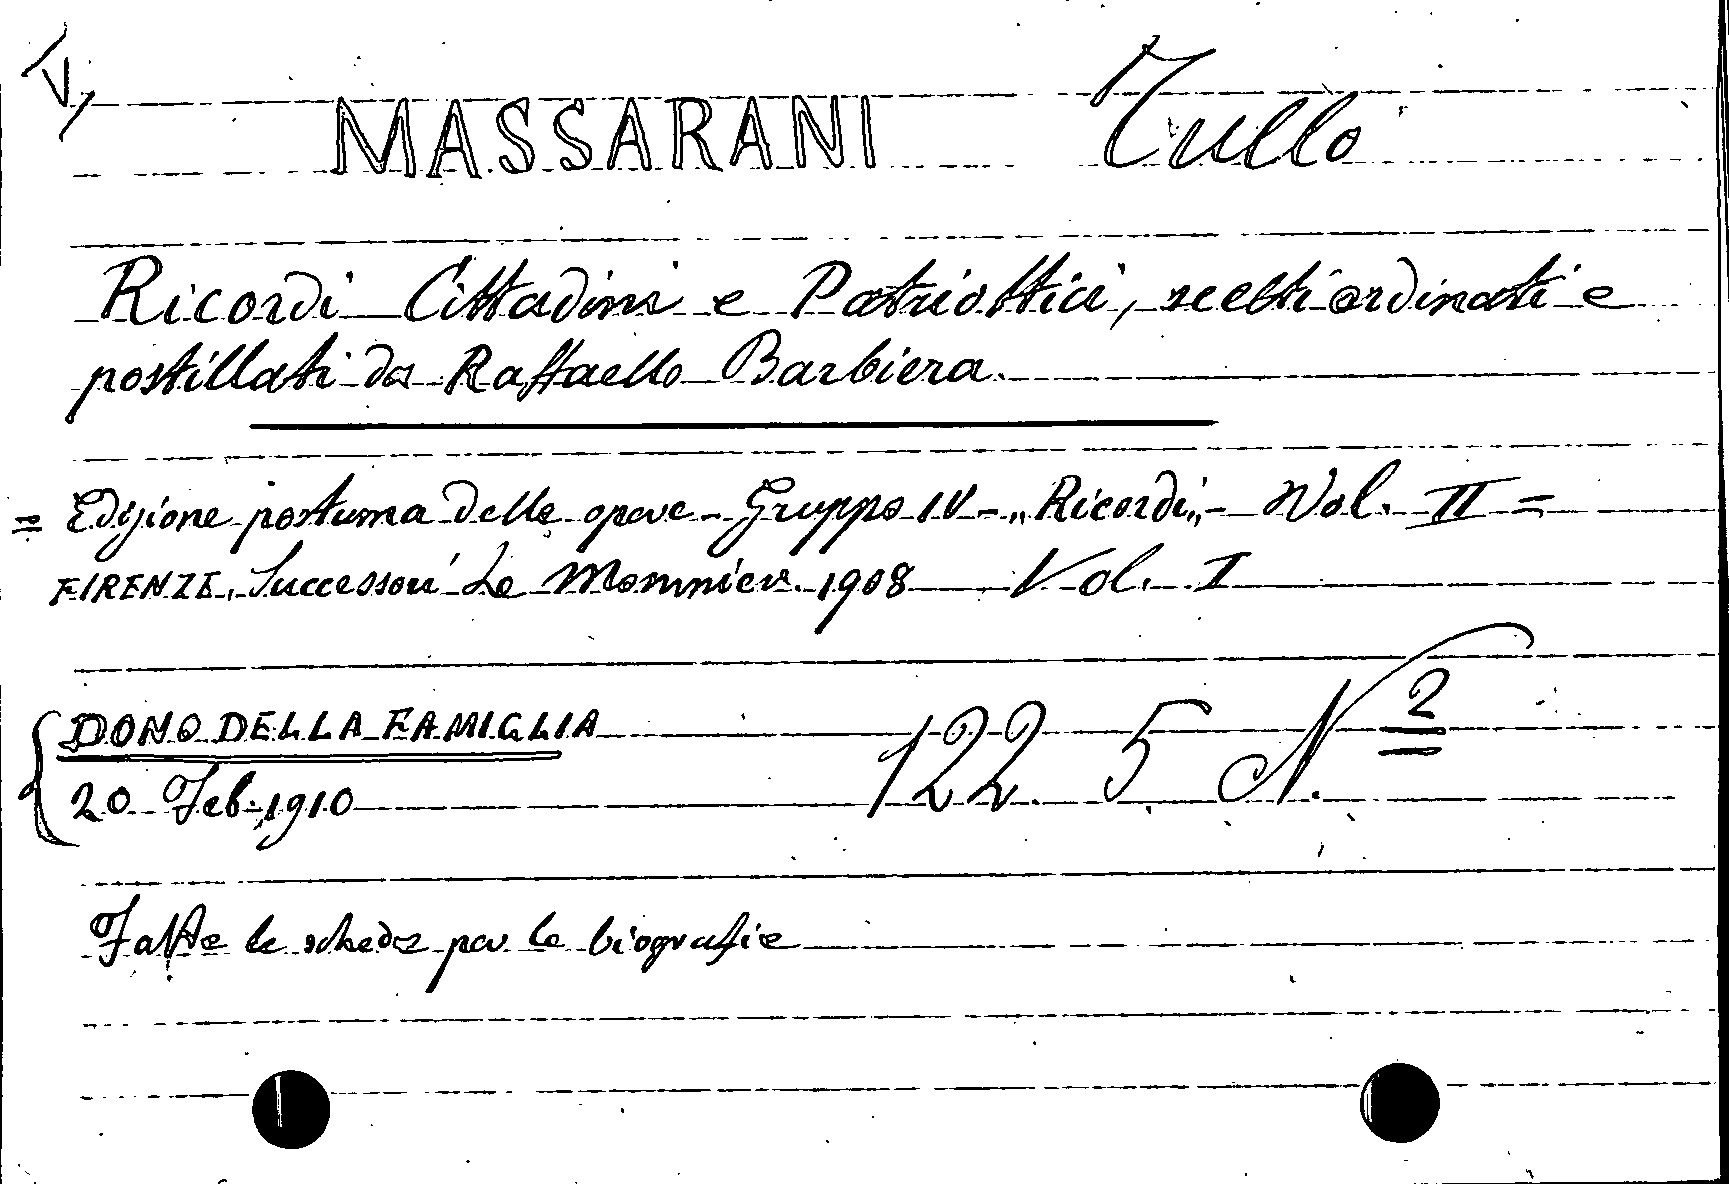 V,
MASSARANI Tullo
Ricordi Cittadini e Patriottici, scelti ordinati e
postillati da Raffaello Barbiera.
= Edizione postuma delle opere - Gruppo IV - „Ricordi„ - Vol. II =
FIRENZE. Successori Le Monnier. 1908 Vol. I
DONO DELLA FAMIGLIA
20 Feb. 1910
122. 5 N. 2
Fatte le schede per le biografie